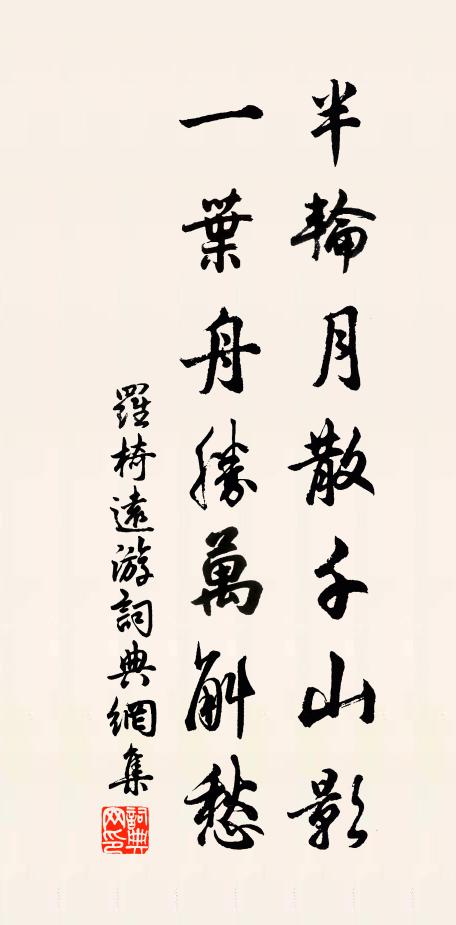 半輪月散千山影
一葉舟勝萬斛愁
羅椅遠游詞典網集
詞典網印